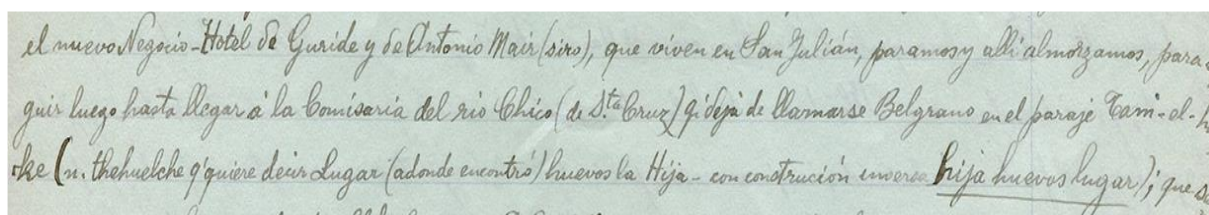 el nuevo Negocio-Hotel de Guride y de Antonio Mair (siro), que viven en San Julián, paramos y allí almorzamos, para
guir luego hasta llegar á la Comisaria del rio Chico (de Sta. Cruz) q' dejá de llamarse Belgrano en el paraje Tam-el-
ke (n. thehuelche q' quiere decir Lugar (adonde encontró) huevos la Hija - con construción inversa hija huevos lugar); que